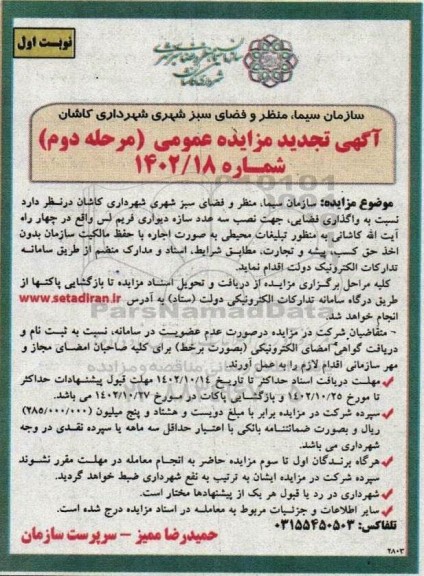 نوبت اول
سازمان سیما، منظر و فضای سبز شهری شهرداری کاشان
آگهی تجدید مزایده عمومی (مرحله دوم)
شماره ۱۴۰۲/۱۸
موضوع مزایده: سازمان سیما، منظر و فضای سبز شهری شهرداری کاشان درنظر دارد
نسبت به واگذاری فضایی، جهت نصب سه عدد سازه دیواری فریم لس واقع در چهار راه
آیت الله کاشانی به منظور تبلیغات محیطی به صورت اجاره با حفظ مالکیت سازمان بدون
اخذ حق کسب، پیشه و تجارت، مطابق شرایط، اسناد و مدارک منضم از طریق سامانه
تدارکات الکترونیک دولت اقدام نماید.
کلیه مراحل برگزاری مزایده از دریافت و تحویل اسناد مزایده تا بازگشایی پاکتها از
طریق درگاه سامانه تدارکات الکترونیکی دولت (ستاد) به آدرس www.setadiran.ir
انجام خواهد شد.
- متقاضیان شرکت در مزایده درصورت عدم عضویت در سامانه، نسبت به ثبت نام و
دریافت گواهی امضای الکترونیکی (بصورت برخط) برای کلیه صاحبان امضای مجاز و
مهر سازمانی اقدام لازم را به عمل آورند.
مهلت دریافت اسناد حداکثر تا تاریخ ۱۴۰۲/۱۰/۱۴ مهلت قبول پیشنهادات حداکثر
تا مورخ ۱۴۰۲/۱۰/۲۵ و بازگشایی پاکات در مورخ ۱۴۰۲/۱۰/۲۷ می باشد.
سپرده شرکت در مزایده برابر با مبلغ دویست و هشتاد و پنج میلیون (۲۸۵/۰۰۰/۰۰۰)
ریال و بصورت ضمانتنامه بانکی با اعتبار حداقل سه ماهه یا سپرده نقدی در وجه
شهرداری می باشد.
هرگاه برندگان اول تا سوم مزایده حاضر به انجام معامله در مهلت مقرر نشوند
سپرده شرکت در مزایده ایشان به ترتیب به نفع شهرداری ضبط خواهد گردید.
شهرداری در رد یا قبول هر یک از پیشنهادها مختار است.
سایر اطلاعات و جزئیات مربوط به معامله در اسناد مزایده درج شده است.
تلفاکس: ۰۳۱۵۵۴۵۰۵۰۳
حمیدرضا ممیز - سرپرست سازمان
۲۸۰۳
ParsNamadData